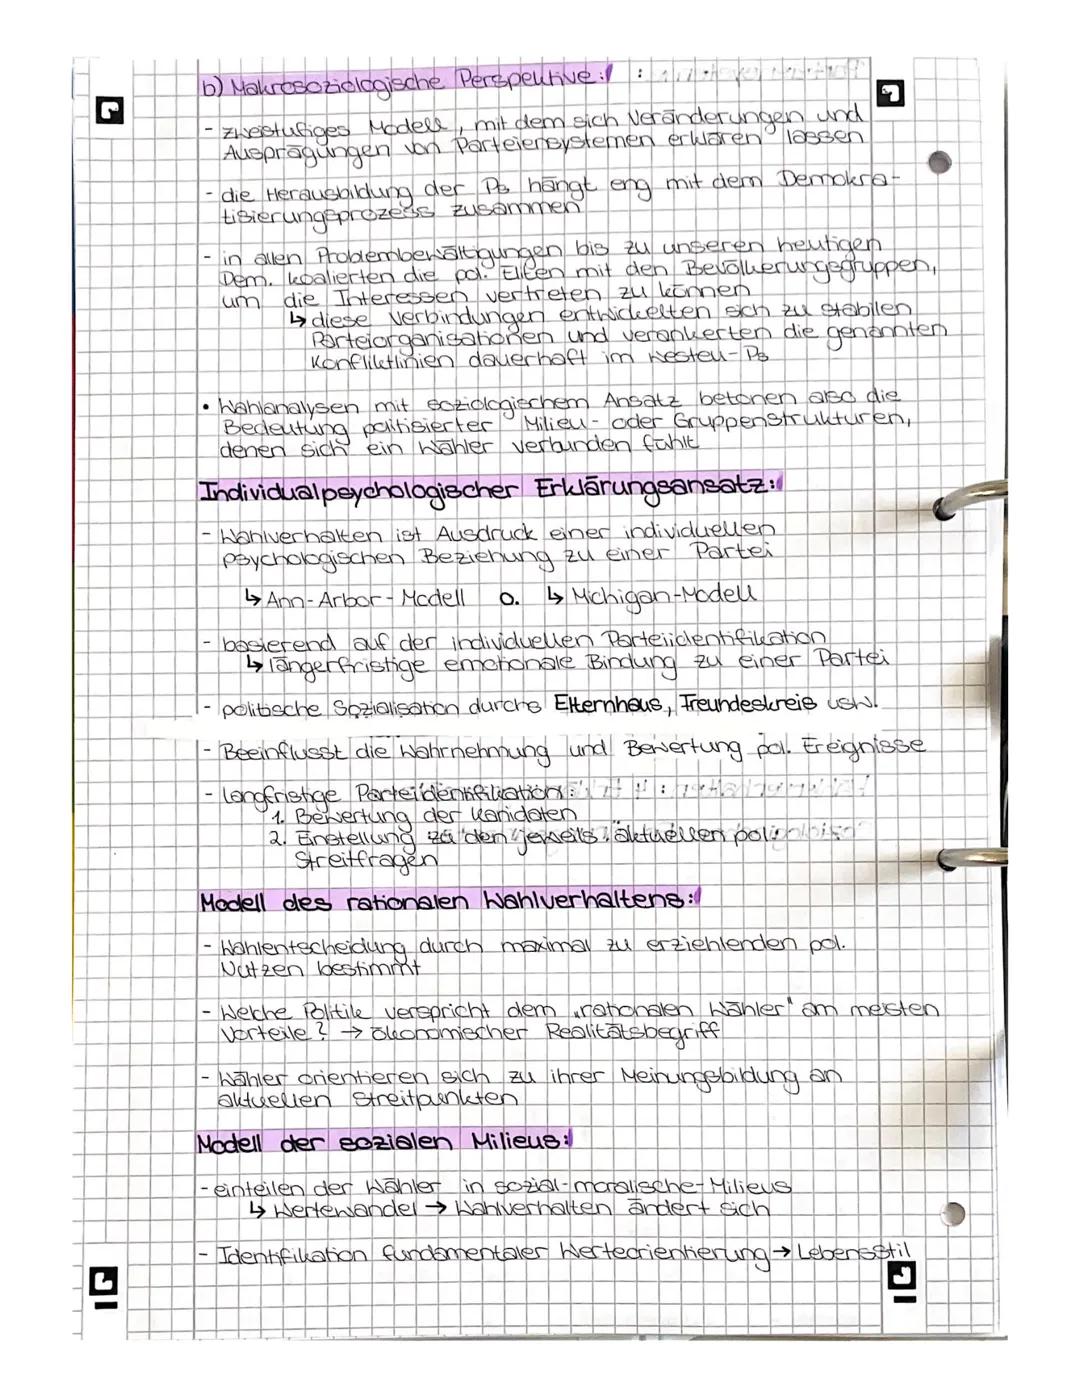 b) Makrosoziologische Perspektive:
- zweistufiges Modell, mit dem sich Veränderungen und
Ausprägungen von Parteiensystemen erklären lassen
- die Herausbildung der Ps hängt eng mit dem Demokra-
tisierungsprozess zusammen
- in allen Problembewältigungen bis zu unseren heutigen
Dem. koalierten die pol. Eliten mit den Bevölkerungsgruppen,
um die Interessen vertreten zu können
↳ diese Verbindungen entwickelten sich zu stabilen
Parteiorganisationen und verankerten die genannten
Konfliktlinien dauerhaft im westeu-Ps
• Wahlanalysen mit soziologischem Ansatz betonen also die
Bedeutung politisierter Milieu- oder Gruppenstrukturen,
denen sich ein Wähler verbunden fühlt
Individualpsychologischer Erklärungsansatz:
- Wahlverhalten ist Ausdruck einer individuellen
psychologischen Beziehung zu einer Partei
↳ Ann-Arbor-Modell o. ↳ Michigan-Modell
- basierend auf der individuellen Parteiidentifikation
↳ längerfristige emotionale Bindung zu einer Partei
- politische Sozialisation durchs Elternhaus, Freundeskreis usw.
- Beeinflusst die Wahrnehmung und Bewertung pol. Ereignisse
- langfristige Parteiidentifikation:
1. Bewertung der Kanidaten
2. Einstellung zu den jeweils aktuellen
Streitfragen
Modell des rationalen Wahlverhaltens:
- Wahlentscheidung durch maximal zu erziehlenden pol.
Nutzen bestimmt
- Welche Politik verspricht dem „rationalen Wähler" am meisten
Vorteile? → ökonomischer Realitätsbegriff
- Wähler orientieren sich zu ihrer Meinungsbildung an
aktuellen Streitpunkten
Modell der sozialen Milieus:
- einteilen der Wähler in sozial-moralische-Milieus
↳ Wertewandel → Wahlverhalten ändert sich
- Identifikation fundamentaler Werteorientierung → Lebensstil